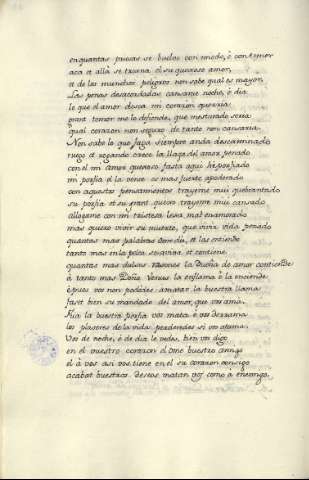 en quantas pueas se buelve con miedo, è con temor
aca et allà se trxuna el su quexoso amor,
et de los muchos peligros non sabe qual es mayor.
Las penas desacordadas cansanme noche, è dia
lo que el amor desea mi corazon querria
grant temor me lo defiende, que mesturado seria
qual corazon non seguro de tanto non cansaria.
Non sabe lo que faga siempre anda descaminado
ruego et rogando crece la llaga del amor penado
con el mi amor quexoso fasta aqui he porfiado
mi porfia el la vence es mas fuerte apoderado
con aquestos pensamientos trayeme muy quebrantado
su porfia et su grant quexa trayeme muy cansado
allegome con mi tristesa lasa mas enamorado
mas quiero vivir su muerte, que vivir vida penado
quantas mas palabras desides, et las entiendo
tanto mas en la pelea se aviva et contiende
quantas mas dulces rasones la Dueña de amor contiende
è tanto mas Doña Venus la enflama è la enciende
è pues vos non podedes amatar la buestra llama
faset bien su mandado del amor, que vos ama
Fija la buestra porfia vos mata è vos derrama
los plaseres de la vida perdendes si vos atama.
Vos de noche, è de dia lo vedes, bien vos digo
en el vuestro corazon al ome buestro amigo
el à vos asi vos tiene en el su corazon consigo
acabat buestros deseos matan vos como à enemigo.